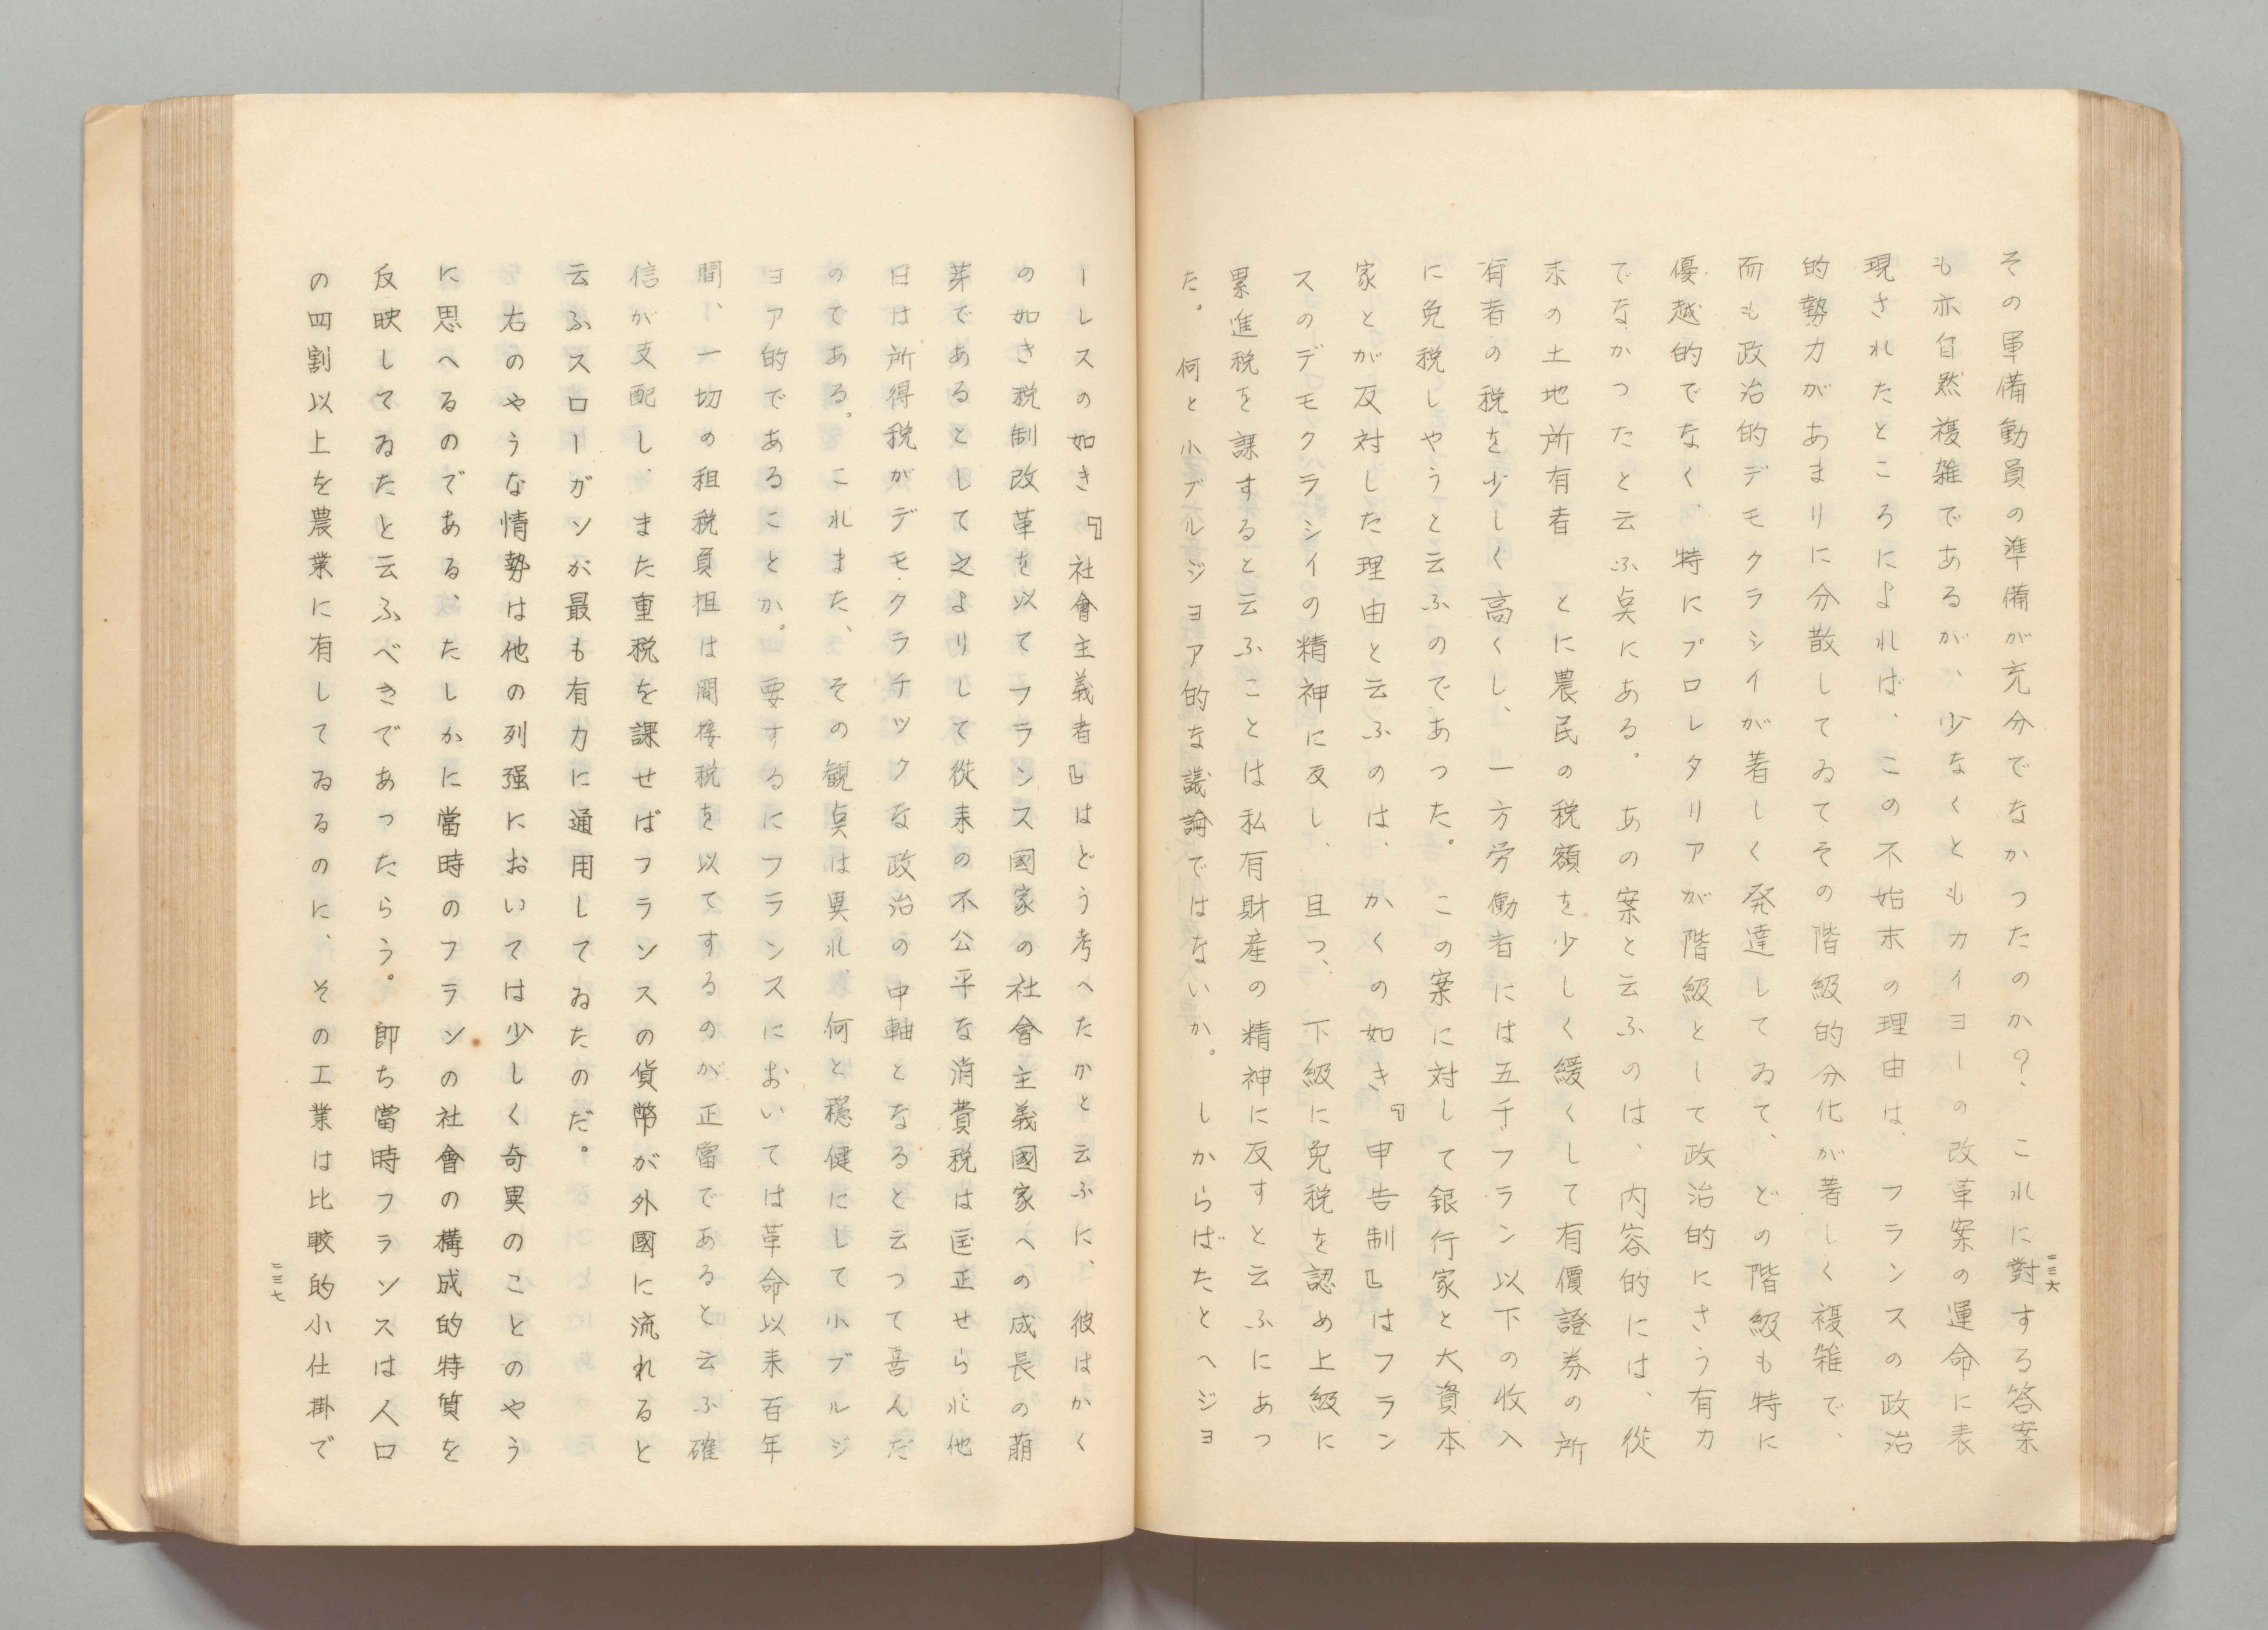 その軍備動員の準備が充分でなかつたのか?、これに對する答案
も亦自然複雑であるが、少なくともカイヨーの改革案の運命に表
現されたところによれば、この不始末の理由は、フランスの政治
的勢力があまりに分散してゐてその階級的分化が著しく複雑で、
而も政治的デモクラシイが著しく発達してゐて、どの階級も特に
優越的でなく、特にプロレタリアが階級として政治的にさう有力
でなかつたと云ふ点にある。あの案と云ふのは、内容的には、従
来の土地所有者とに農民の税額を少しく緩くして有價證券の所
有者の税を少しく高くし、一方労働者には五千フラン以下の收入
に免税しやうと云ふのであつた。この案に対して銀行家と大資本
家とが反対した理由と云ふのは、かくの如き『申告制』はフラン
スのデモクラシイの精神に反し、且つ、下級に免税を認め上級に
累進税を課すると云ふことは私有財産の精神に反すと云ふにあつ
た。何と小ブルジヨア的な議論ではないか。しからばたとへジヨ
二三六
ーレスの如き『社會主義者』はどう考へたかと云ふに、彼はかく
の如き税制改革を以てフランス國家の社會主義國家への成長の萠
芽であるとして之よりして従来の不公平な消費税は匡正せられ他
日は所得税がデモクラチツクな政治の中軸となると云つて喜んだ
のである。これまた、その観点は異れ、何と穏健にして小ブルジ
ヨア的であることか。要するにフランスにおいては革命以来百年
間、一切の租税負担は間接税を以てするのが正當であると云ふ確
信が支配し、また重税を課せばフランスの貨幣が外國に流れると
云ふスローガンが最も有力に通用してゐたのだ。
右のやうな情勢は他の列强においては少しく奇異のことのやう
に思へるのである、たしかに當時のフランの社會の構成的特質を
反映してゐたと云ふべきであつたらう。即ち當時フランスは人口
の四割以上を農業に有してゐるのに、その工業は比較的小仕掛で
二三七